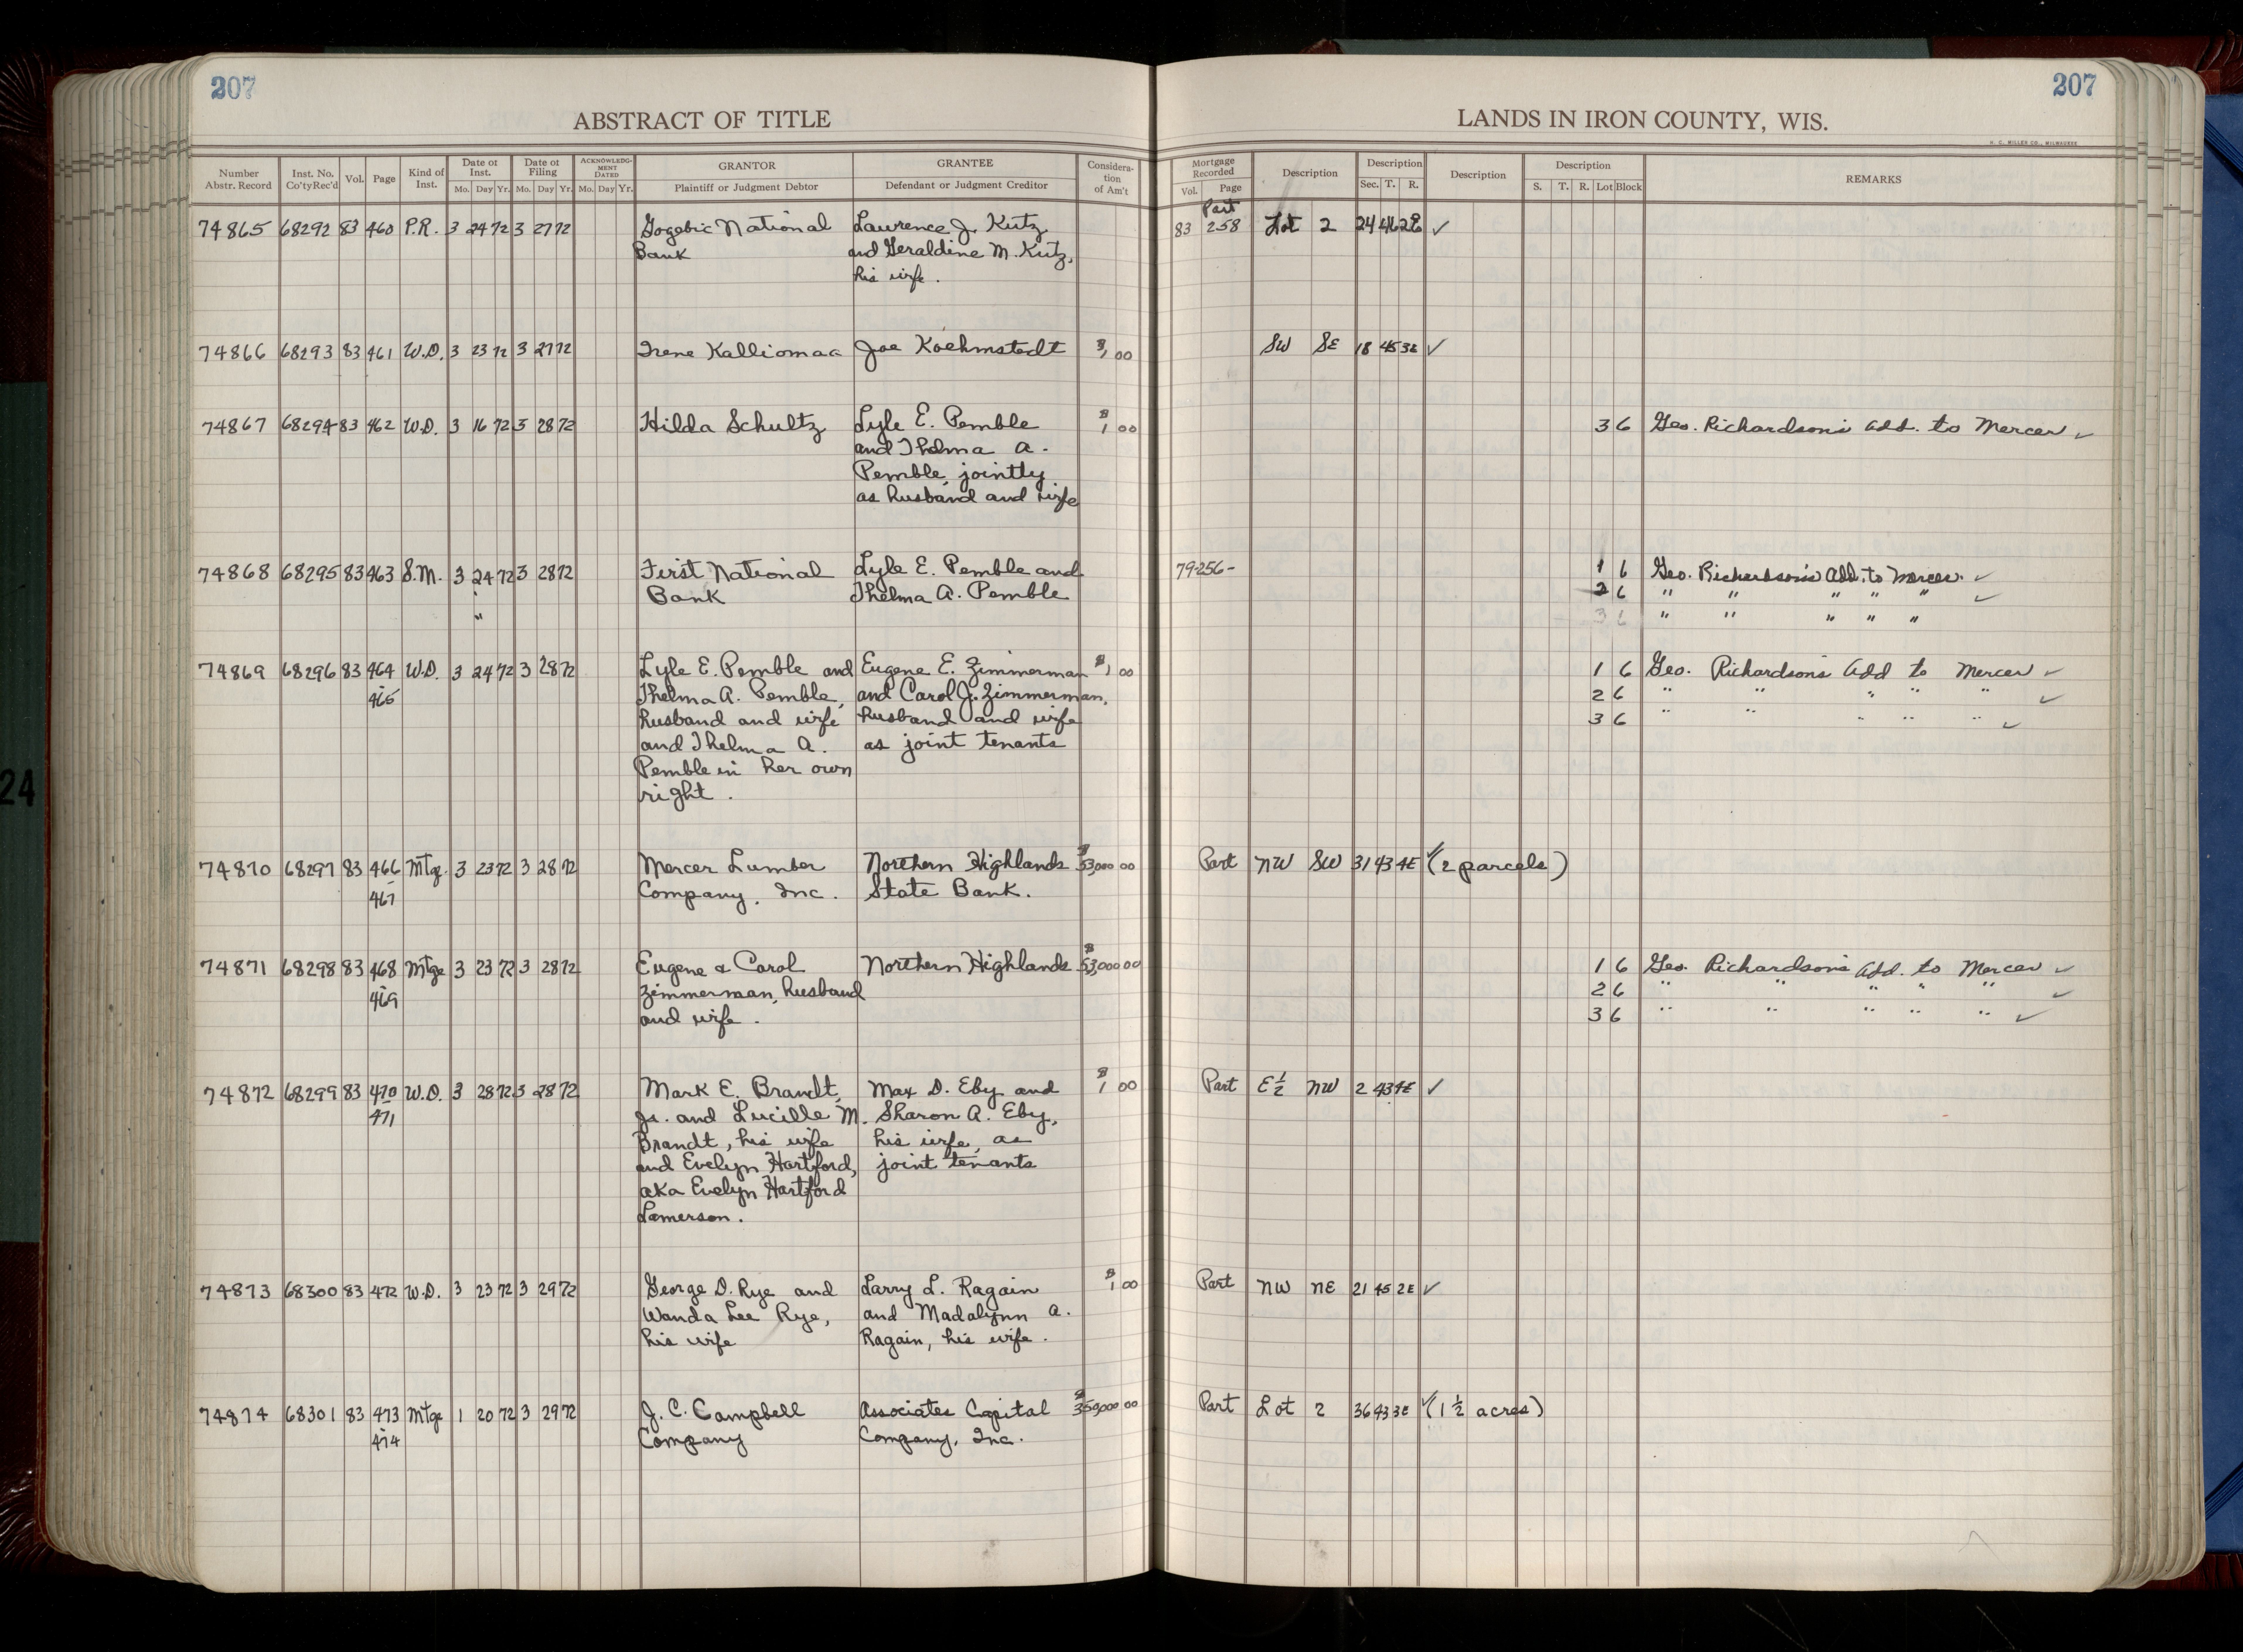 207
207
ABSTRACT OF TITLE
LANDS IN IRON COUNTY, WIS.
H. C. MILLER CO., MILWAUKEE
Number Abstr. Record | Inst. No. Co'tyRec'd | Vol. | Page | Kind of Inst. | Date of Inst. Mo. Day Yr. | Date of Filing Mo. Day Yr. | ACKNOWLEDG-MENT DATED Mo. Day Yr. | GRANTOR Plaintiff or Judgment Debtor | GRANTEE Defendant or Judgment Creditor | Considera-tion of Am't | Mortgage Recorded Vol. Page | Description | Description Sec. T. R. | Description | Description S. T. R. Lot Block | REMARKS
Part
74865 68292 83 460 P.R. 3 24 72 3 27 72 Gogebic National Lawrence J. Kutz 83 258 Lot 2 24 46 2E ✓
Bank and Geraldine M. Kutz,
his wife.
74866 68293 83 461 W.D. 3 23 72 3 27 72 Irene Kalliomaa Joe Koehmstedt $1 00 SW SE 18 45 3E ✓
74867 68294 83 462 W.D. 3 16 72 3 28 72 Hilda Schultz Lyle E. Pemble $1 00 3 6 Geo. Richardson's Add. to Mercer ✓
and Thelma A.
Pemble, jointly
as husband and wife
74868 68295 83 463 S.M. 3 24 72 3 28 72 First National Lyle E. Pemble and 79 256- 1 6 Geo. Richardson's Add. to Mercer. ✓
Bank Thelma A. Pemble 2 6 " " " " " ✓
" 3 6 " " " " "
74869 68296 83 464 W.D. 3 24 72 3 28 72 Lyle E. Pemble and Eugene E. Zimmerman $1 00 1 6 Geo. Richardson's Add to Mercer ✓
465 Thelma A. Pemble, and Carol J. Zimmerman, 2 6 " " " " " ✓
husband and wife husband and wife 3 6 " " " " " ✓
and Thelma A. as joint tenants
Pemble in her own
right.
74870 68297 83 466 Mtge. 3 23 72 3 28 72 Mercer Lumber Northern Highlands $53,000 00 Part NW SW 31 43 4E ✓(2 parcels)
467 Company, Inc. State Bank.
74871 68298 83 468 Mtge 3 23 72 3 28 72 Eugene & Carol Northern Highlands $53,000 00 1 6 Geo. Richardson's Add. to Mercer ✓
469 Zimmerman, husband 2 6 " " " " " ✓
and wife. 3 6 " " " " " ✓
74872 68299 83 470 W.D. 3 28 72 3 28 72 Mark E. Brandt, Max D. Eby and $1 00 Part E½ NW 2 43 4E ✓
471 Jr. and Lucille M. Sharon A. Eby,
Brandt, his wife his wife, as
and Evelyn Hartford, joint tenants
aka Evelyn Hartford
Lamerson.
74873 68300 83 472 W.D. 3 23 72 3 29 72 George D. Rye and Larry L. Ragain $1 00 Part NW NE 21 45 2E ✓
Wanda Lee Rye, and Madalynn A.
his wife Ragain, his wife.
74874 68301 83 473 Mtge 1 20 72 3 29 72 J. C. Campbell Associates Capital $350,000 00 Part Lot 2 36 43 3E ✓(1½ acres)
474 Company Company, Inc.
24